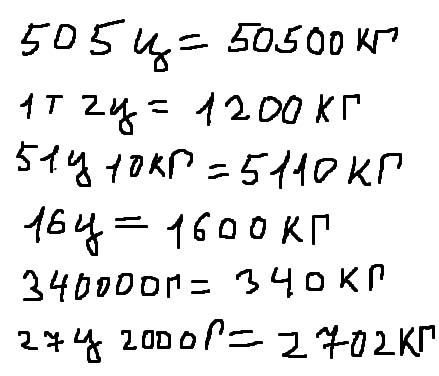 505 ц = 50500 кг
1т 2ц = 1200 кг
51ц 10кг = 5110 кг
16ц = 1600 кг
340000г = 340 кг
27ц 2000г = 2702 кг